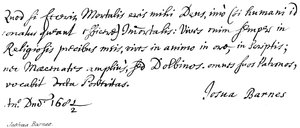 Quod si feceris, Mortalis eris mihi Deus, imo (si humani
onatus queant efficere) Immortalis: Vives nim semper in
Religiosis precibus meis, vives in animo in ore, in Scriptis;
nec Mæcenates amplius, sed Dolbinos omnes suos Patronos,
vocabit Posteritas.
An: Dni 168½
Josua Barnes
Joshua Barnes